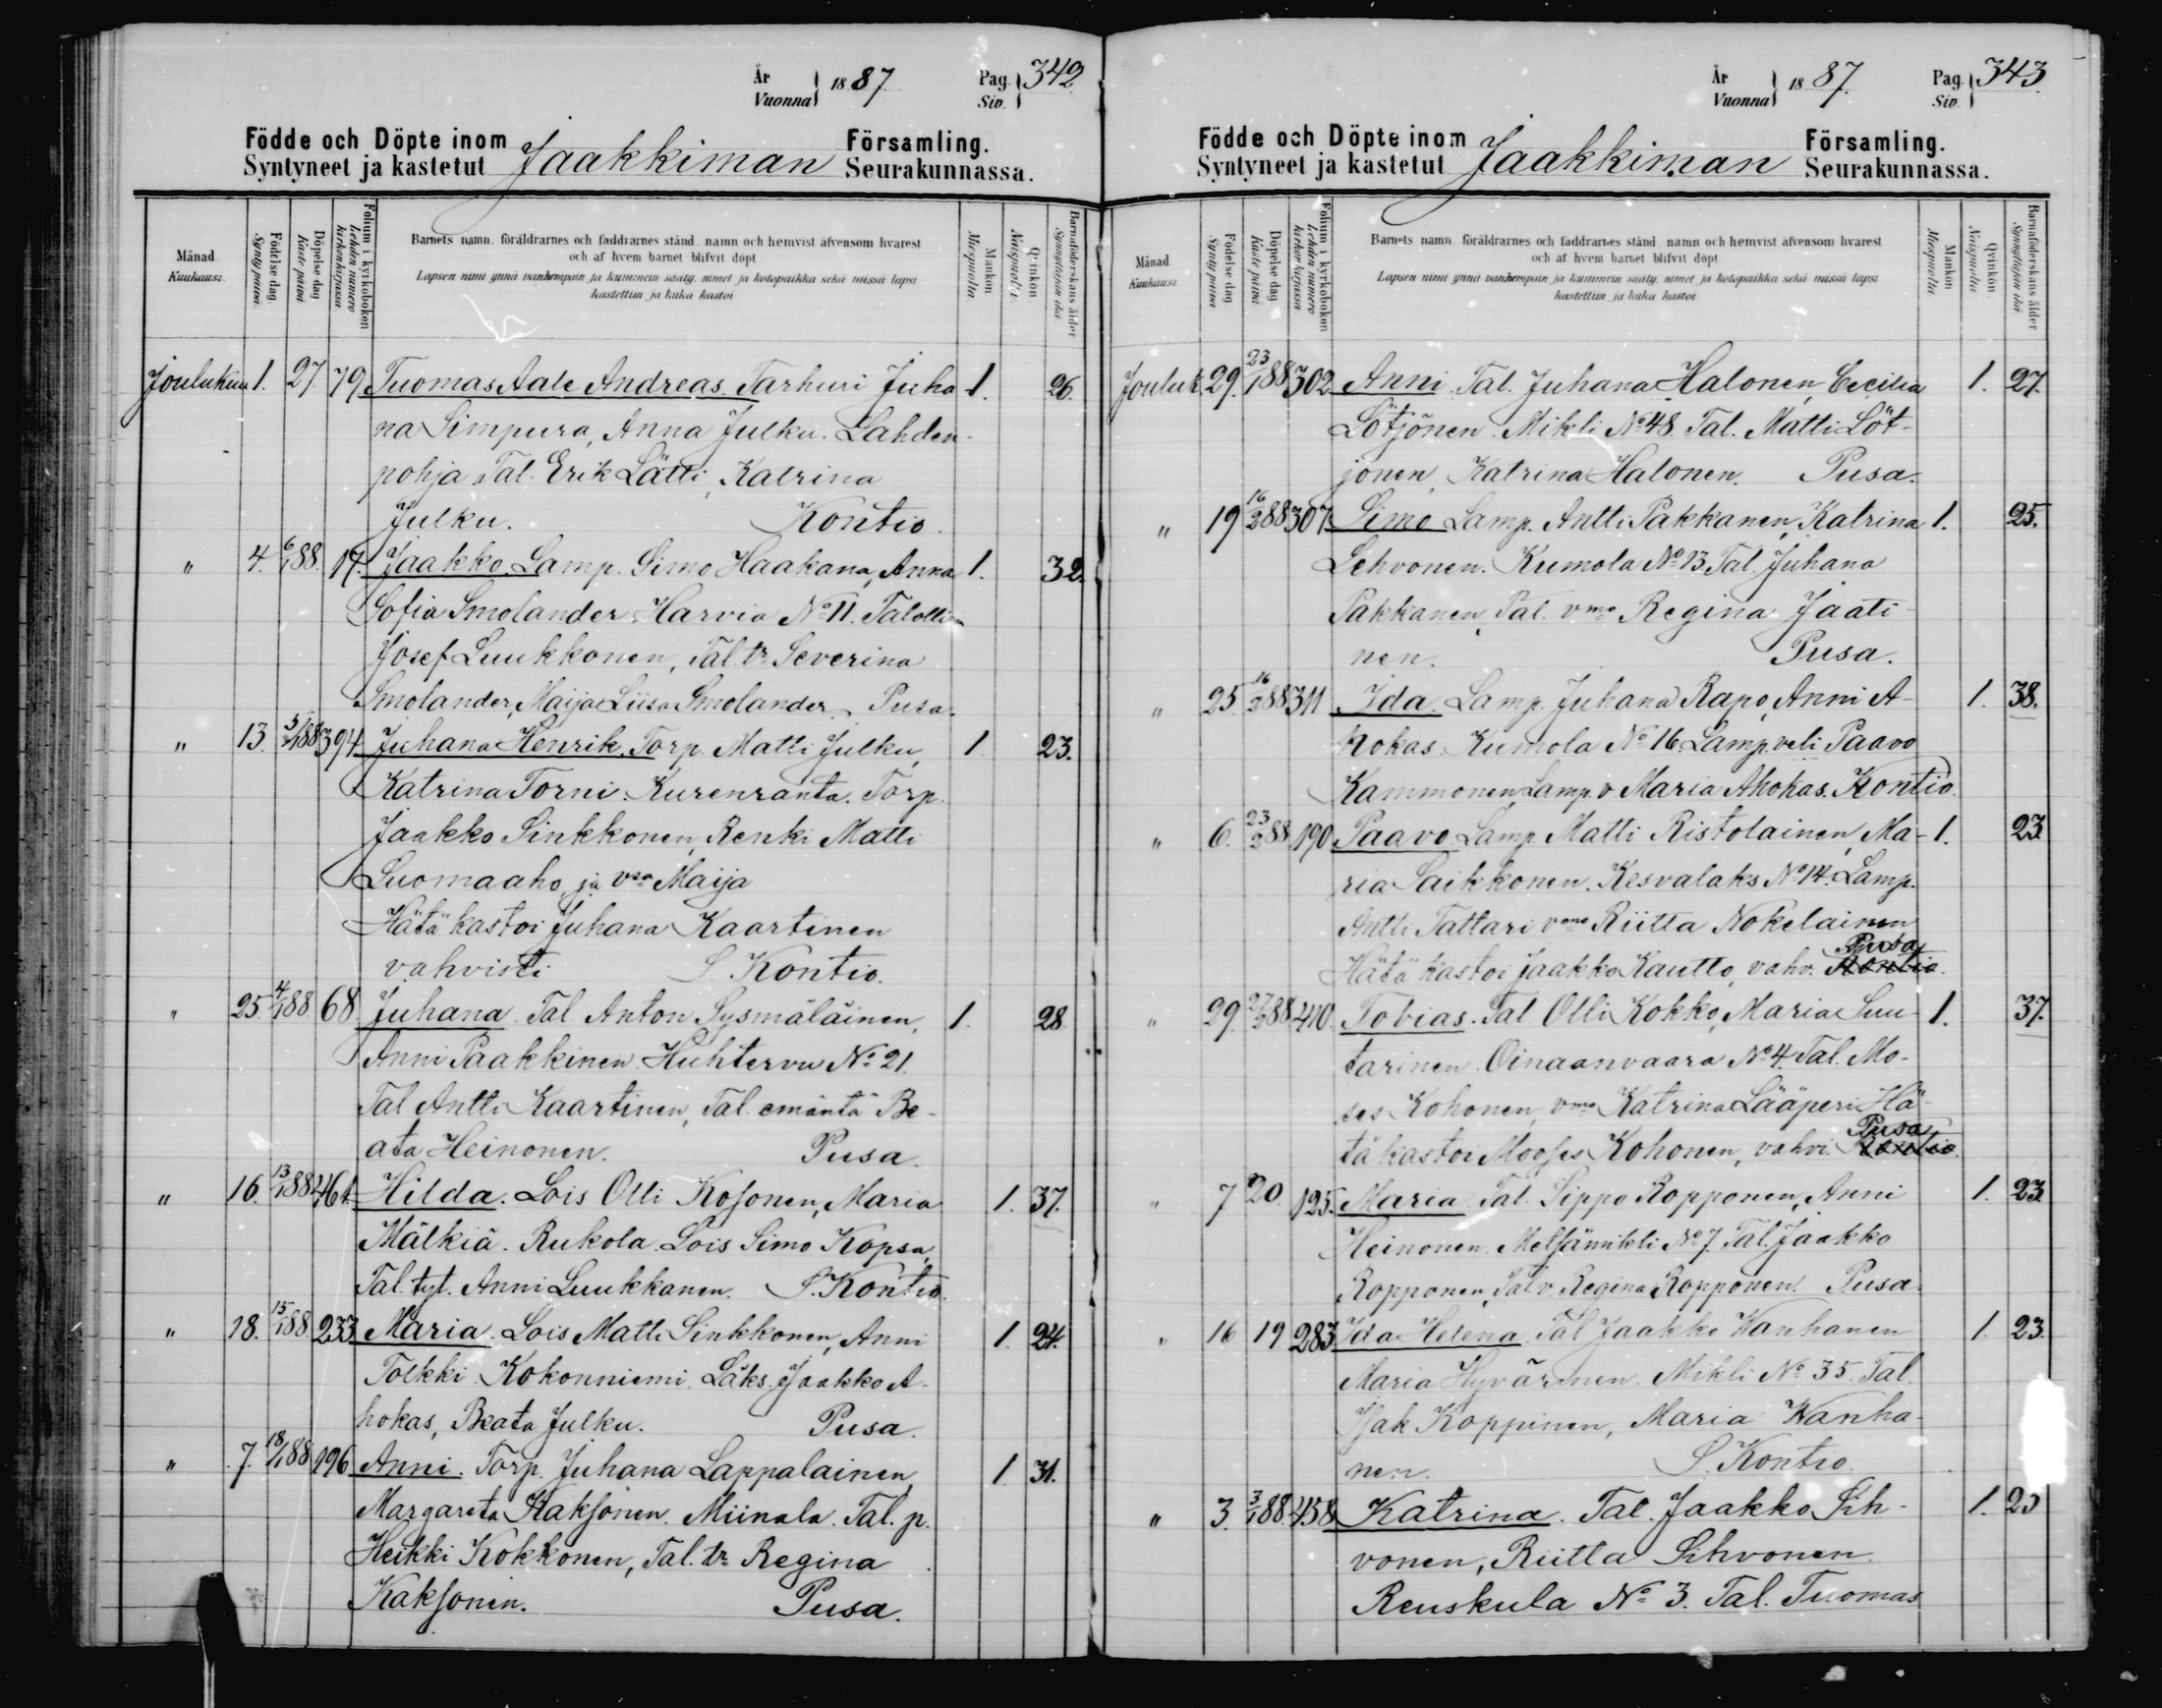 År
Vuonna 1887. Pag. Siv. 342
Födde och Döpte inom Jaakkiman Församling.
Syntyneet ja kastetut Seurakunnassa.
Månad. Kuukausi.
Födelse dag Synty päivä.
Döpelse dag Kaste päivä
Folium i kyrkoboken Lehden numero kirkonkirjassa.
Barnets namn, föräldrarnes och faddrarnes stånd, namn och hemvist äfvensom hvarest
och af hvem barnet blifvit döpt.
Lapsen nimi ynnä vanhempain ja kummein sääty, nimet ja kotopaikka sekä missä lapsi
kastettiin ja kuka kastoi
Mankön Miespuolta
Qvinkön Naispuolta
Barnaföderskans ålder Synnyttäjän ikä
Jouluku 1. 27. 79 Tuomas Aale Andreas. Tarhuri Juha- 1. 26.
na Simpura, Anna Julku. Lahden-
pohja Tal. Erik Lätti, Katrina
Julku. Kontio.
" 4. 6/1 88. 17. Jaakko. Lamp. Simo Haakana, Anna 1. 32.
Sofia Smolander Harvia No 11. Talollinen
Josef Luukkonen, Tal. tr Severina
Smolander, Maija Liisa Smolander. Pusa.
" 13. 5/1 88 394 Juhana Henrik. Torp. Matti Julku, 1. 23.
Katrina Torni. Kurenranta. Torp.
Jaakko Sinkkonen, Renki Matti
Luomaaho ja vsa Maija
Hätä kastoi Juhana Kaartinen
vahvisti S. Kontio.
" 25. 4/1 88 68 Juhana. Tal Anton Sysmäläinen, 1. 28
Anni Paakkinen. Huhtervu No 21.
Tal Antti Kaartinen, Tal. emäntä Be-
ata Heinonen. Pusa.
" 16. 13/1 88 461. Hilda. Lois Olli Kosonen, Maria 1. 37.
Mälkiä. Rukola. Lois Simo Kopsa,
Tal. tyt. Anni Luukkanen. S. Kontio.
" 18. 15/1 88. 233 Maria. Lois Matti Sinkkonen, Anni 1. 24.
Tolkki. Kokonniemi. Läks. Jaakko A-
hokas, Beata Julku. Pusa.
" 7. 18/1 88 196 Anni. Torp. Juhana Lappalainen, 1. 31.
Margareta Kaksonen. Miinala. Tal. p.
Heikki Kokkonen, Tal. tr Regina
Kaksonen. Pusa.
År
Vuonna 1887. Pag. Siv. 343
Födde och Döpte inom Jaakkiman Församling.
Syntyneet ja kastetut Seurakunnassa.
Månad Kuukausi
Födelse dag Synty päivä
Döpelse dag Kaste päivä
Folium i kyrkoboken Lehden numero kirkonkirjassa
Barnets namn, föräldrarnes och faddrarnes stånd, namn och hemvist äfvensom hvarest
och af hvem barnet blifvit döpt
Lapsen nimi ynnä vanhempain ja kummein sääty, nimet ja kotopaikka sekä missä lapsi
kastettiin ja kuka kastoi
Mankön Miespuolta
Qvinkön Naispuolta
Barnaföderskans ålder Synnyttäjän ikä
Jouluk. 29. 23/1 88 302. Anni. Tal. Juhana Halonen, Cecilia 1. 27.
Lötjönen. Mikli No 48. Tal. Matti Löt-
jonen, Katrina Halonen. Pusa.
" 19 16/2 88 307 Simo Lamp. Antti Pakkanen, Katrina 1. 25.
Lehvonen. Kumola No 13. Tal. Juhana
Pakkanen, Tal. vmo Regina Jaati-
nen. Pusa.
" 25. 16/2 88 311 Ida. Lamp. Juhana Rapo, Anni A- 1. 38.
hokas Kumola No 16 Lamp. veli Paavo
Kammonen, Lamp. v Maria Ahokas. Kontio.
" 6. 23/2 88 190 Paavo. Lamp. Matti Ristolainen, Ma- 1. 23
ria Saikkonen. Kesvalaks No 14. Lamp.
Antti Tattari vmo Riitta Nokelainen
Pusa
Hätä kastoi Jaakko Kautto, vahv. Kontio.
" 29. 27/2 88 410. Tobias. Tal Olli Kokko, Maria Suu- 1. 37.
tarinen. Oinaanvaara No 4. Tal. Mo-
ses Kohonen, vmo Katrina Lääperi Hä-
Pusa
tä kastoi Mooses Kohonen, vahvi. Kontio.
" 7 20. 125. Maria Tal. Sippo Ropponen, Anni 1. 23.
Heinonen. Metsämikli No 7. Tal. Jaakko
Ropponen, Tal. v. Regina Ropponen. Pusa.
" 16 19. 283. Ida Helena. Tal Jaakko Wanhanen 1. 23.
Maria Hyvärinen. Mikli No 35. Tal.
Isak Koppinen, Maria Wanha-
nen. S. Kontio.
" 3. 3/1 88. 458 Katrina. Tal. Jaakko Sih- 1. 25
vonen, Riitta Sihvonen.
Reuskula No 3. Tal. Tuomas